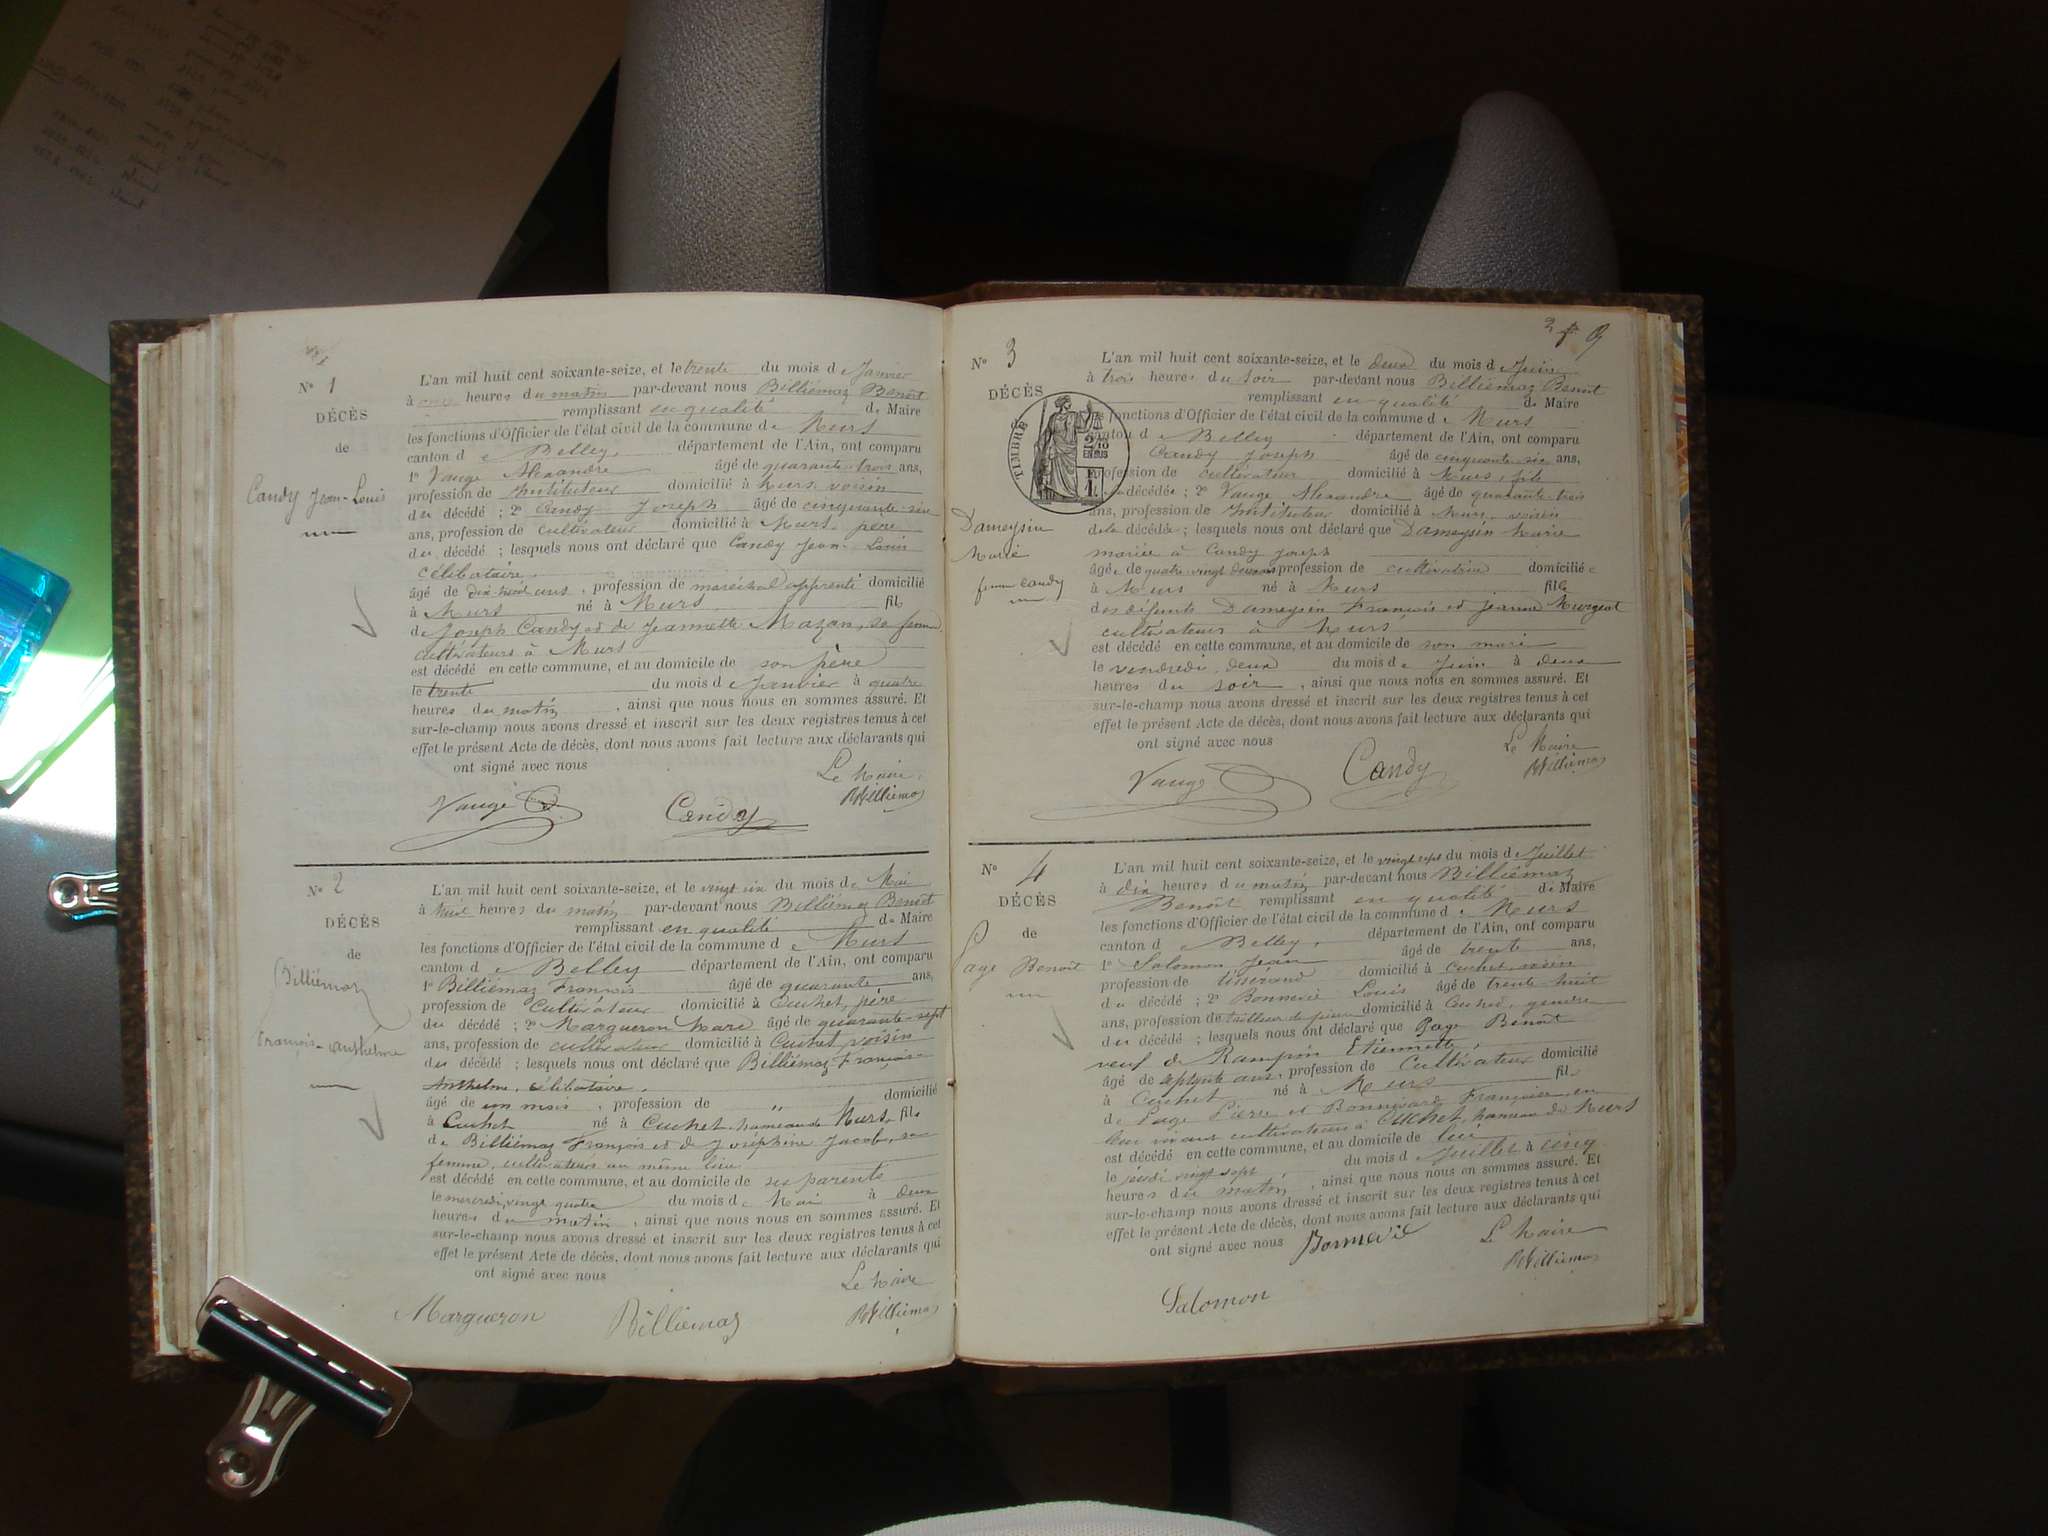 N° 1
DÉCÈS
de
Candy Jean-Louis
L'an mil huit cent soixante-seize, et le trente du mois de Janvier
à onze heures du matin par-devant nous Billiémaz Benoît
remplissant en qualité de Maire
les fonctions d'Officier de l'état civil de la commune de Murs
canton de Belley, département de l'Ain, ont comparu
1° Vauge Alexandre âgé de quarante-trois ans,
profession de Instituteur domicilié à Murs, voisin
du décédé ; 2° Candy Joseph âgé de cinquante-six
ans, profession de cultivateur domicilié à Murs, père
du décédé ; lesquels nous ont déclaré que Candy Jean-Louis
célibataire,
âgé de ans, profession de maréchal apprenti domicilié
à Murs né à Murs fils
de Joseph Candy et de Jeannette Mazon, sa femme,
cultivateurs à Murs
est décédé en cette commune, et au domicile de son père
le trente du mois de Janvier à quatre
heures du matin, ainsi que nous nous en sommes assuré. Et
sur-le-champ nous avons dressé et inscrit sur les deux registres tenus à cet
effet le présent Acte de décès, dont nous avons fait lecture aux déclarants qui
ont signé avec nous
Le Maire
Vauge Candy BBilliémaz
N° 2
DÉCÈS
de
Billiémaz
François-Anthelme
L'an mil huit cent soixante-seize, et le vingt six du mois de Mai
à heures du matin par-devant nous Billiémaz Benoît
remplissant en qualité de Maire
les fonctions d'Officier de l'état civil de la commune de Murs
canton de Belley département de l'Ain, ont comparu
1° Billiémaz François âgé de quarante ans,
profession de Cultivateur domicilié à Cuchet, père
du décédé ; 2° Margueron Marc âgé de quarante-sept
ans, profession de cultivateur domicilié à Cuchet, voisin
du décédé ; lesquels nous ont déclaré que Billiémaz François-
Anthelme, célibataire,
âgé de un mois, profession de „ domicilié
à Cuchet né à Cuchet, hameau de Murs, fils
de Billiémaz François et de Joséphine Jacob, sa
femme, cultivateurs au même lieu
est décédé en cette commune, et au domicile de ses parents
le mercredi, vingt quatre du mois de Mai à deux
heures du matin, ainsi que nous nous en sommes assuré. Et
sur-le-champ nous avons dressé et inscrit sur les deux registres tenus à cet
effet le présent Acte de décès, dont nous avons fait lecture aux déclarants qui
ont signé avec nous
Le Maire
Margueron Billiemaz BBilliémaz
N° 3
DÉCÈS
TIMBRE
2/10
EN SUS
Dameysin
Marie
femme Candy
L'an mil huit cent soixante-seize, et le deux du mois de Juin
à trois heures du soir par-devant nous Billiémaz Benoît
remplissant en qualité de Maire
les fonctions d'Officier de l'état civil de la commune de Murs
canton de Belley département de l'Ain, ont comparu
Candy Joseph âgé de cinquante-six ans,
profession de cultivateur domicilié à Murs, fils
décédée ; 2° Vauge Alexandre âgé de quarante-trois
ans, profession de Instituteur domicilié à Murs, voisin
de la décédée ; lesquels nous ont déclaré que Dameysin Marie
mariée à Candy Joseph
âgée de quatre-vingt profession de cultivatrice domiciliée
à Murs né à Murs fille
des défunts Dameysin François et Jeanne Murgeat
cultivateurs à Murs
est décédé en cette commune, et au domicile de son mari
le vendredi, deux du mois de Juin à deux
heures du soir, ainsi que nous nous en sommes assuré. Et
sur-le-champ nous avons dressé et inscrit sur les deux registres tenus à cet
effet le présent Acte de décès, dont nous avons fait lecture aux déclarants qui
ont signé avec nous
Le Maire
Vauge Candy BBilliémaz
N° 4
DÉCÈS
de
Page Benoît
L'an mil huit cent soixante-seize, et le vingt sept du mois de Juillet
à dix heures du matin par-devant nous Billiémaz
Benoît remplissant en qualité de Maire
les fonctions d'Officier de l'état civil de la commune de Murs
canton de Belley, département de l'Ain, ont comparu
1° Salomon Jean âgé de trente ans,
profession de tisserand domicilié à Cuchet, voisin
du décédé ; 2° Louis âgé de trente-huit
ans, profession de tailleur de pierre domicilié à Cuchet, gendre
du décédé ; lesquels nous ont déclaré que Page Benoît
veuf de Rampon Etiennette,
âgé de septante ans, profession de Cultivateur domicilié
à Cuchet né à Murs fils
de Page Pierre et Bonnivard Françoise, en
leur vivant cultivateurs à Cuchet, hameau de Murs
est décédé en cette commune, et au domicile de lui
le jeudi vingt sept du mois de Juillet à cinq
heures du matin, ainsi que nous nous en sommes assuré. Et
sur-le-champ nous avons dressé et inscrit sur les deux registres tenus à cet
effet le présent Acte de décès, dont nous avons fait lecture aux déclarants qui
ont signé avec nous
Le Maire
BBilliémaz
Salomon